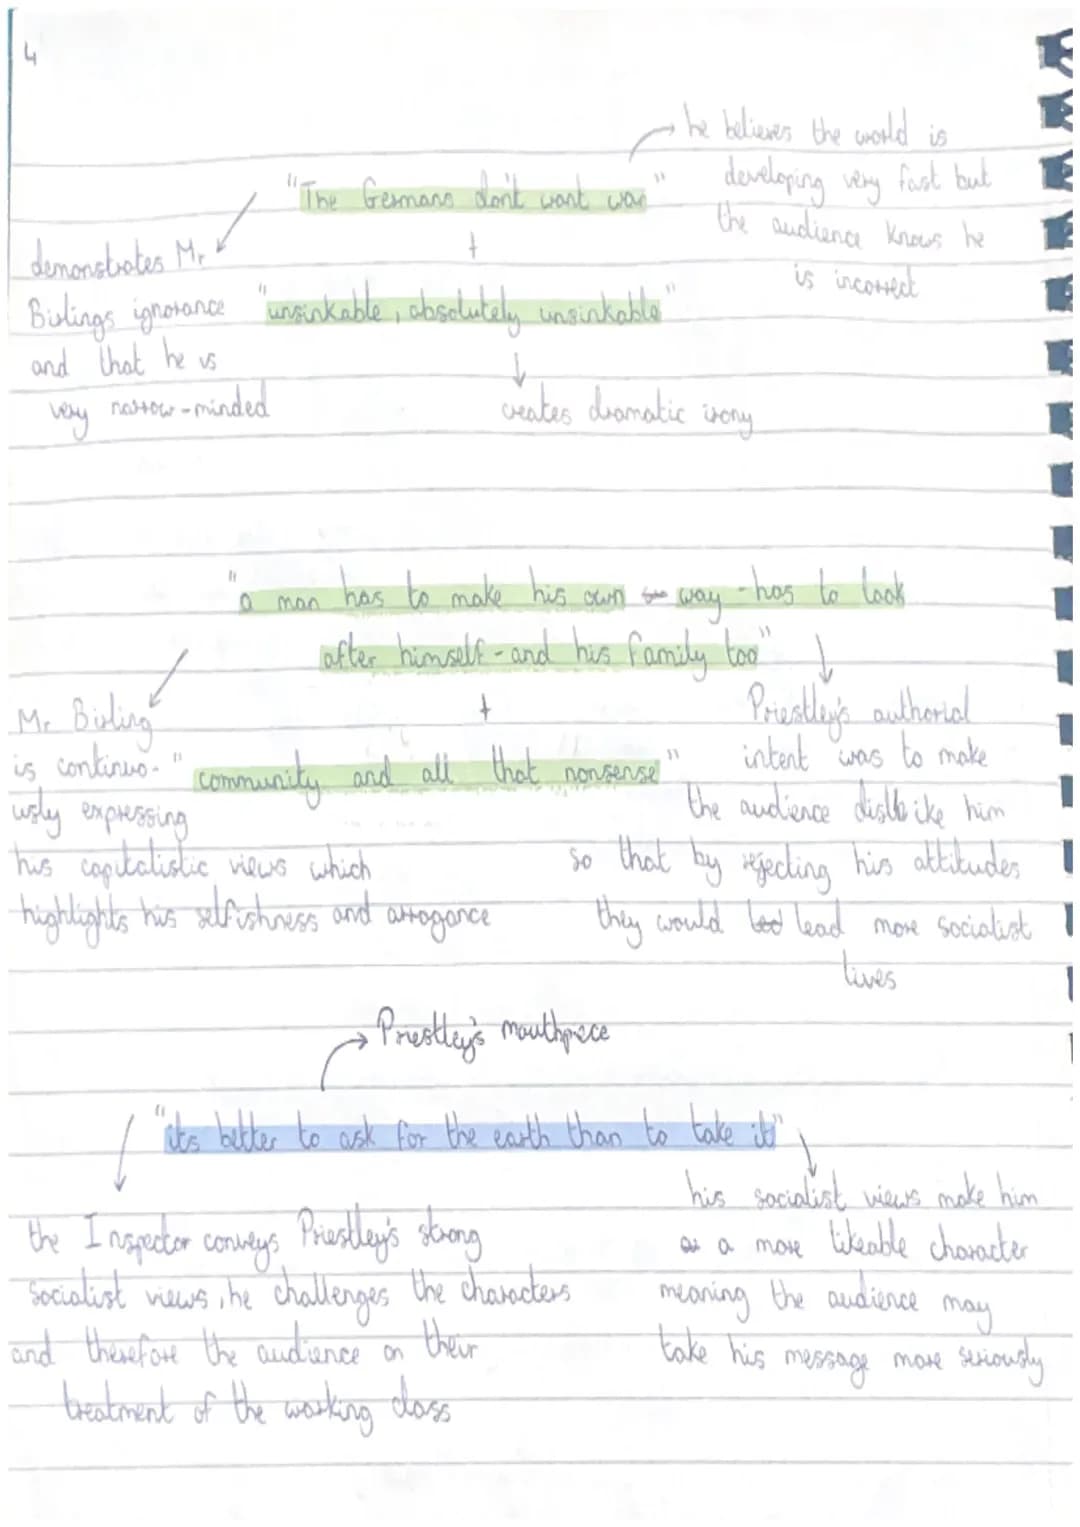 4
he believes the world is
developing very fast but
the audience knows he
is incorrect
"The Germans don't want war"
+
"unsinkable, absolutely unsinkable"
demonstrates Mr
Birlings ignorance
and that he is
very narrow-minded
creates dramatic irony
"a man has to make his own way - has to look
after himself - and his family too"
+
"community and all that nonsense"
Mr Birling
is continuo-
usly expressing
his capitalistic views which
highlights his selfishness and arrogance
Priestley's authorial
intent was to make
the audience dislike him
so that by rejecting his attitudes
they would led lead more socialist
lives
Priestley's mouthpiece
"its better to ask for the earth than to take it"
the Inspector conveys Priestley's strong
Socialist views, he challenges the characters
and therefore the audience on their
treatment of the working class
his socialist views make him
as a more likeable character
meaning the audience may
take his message more seriously